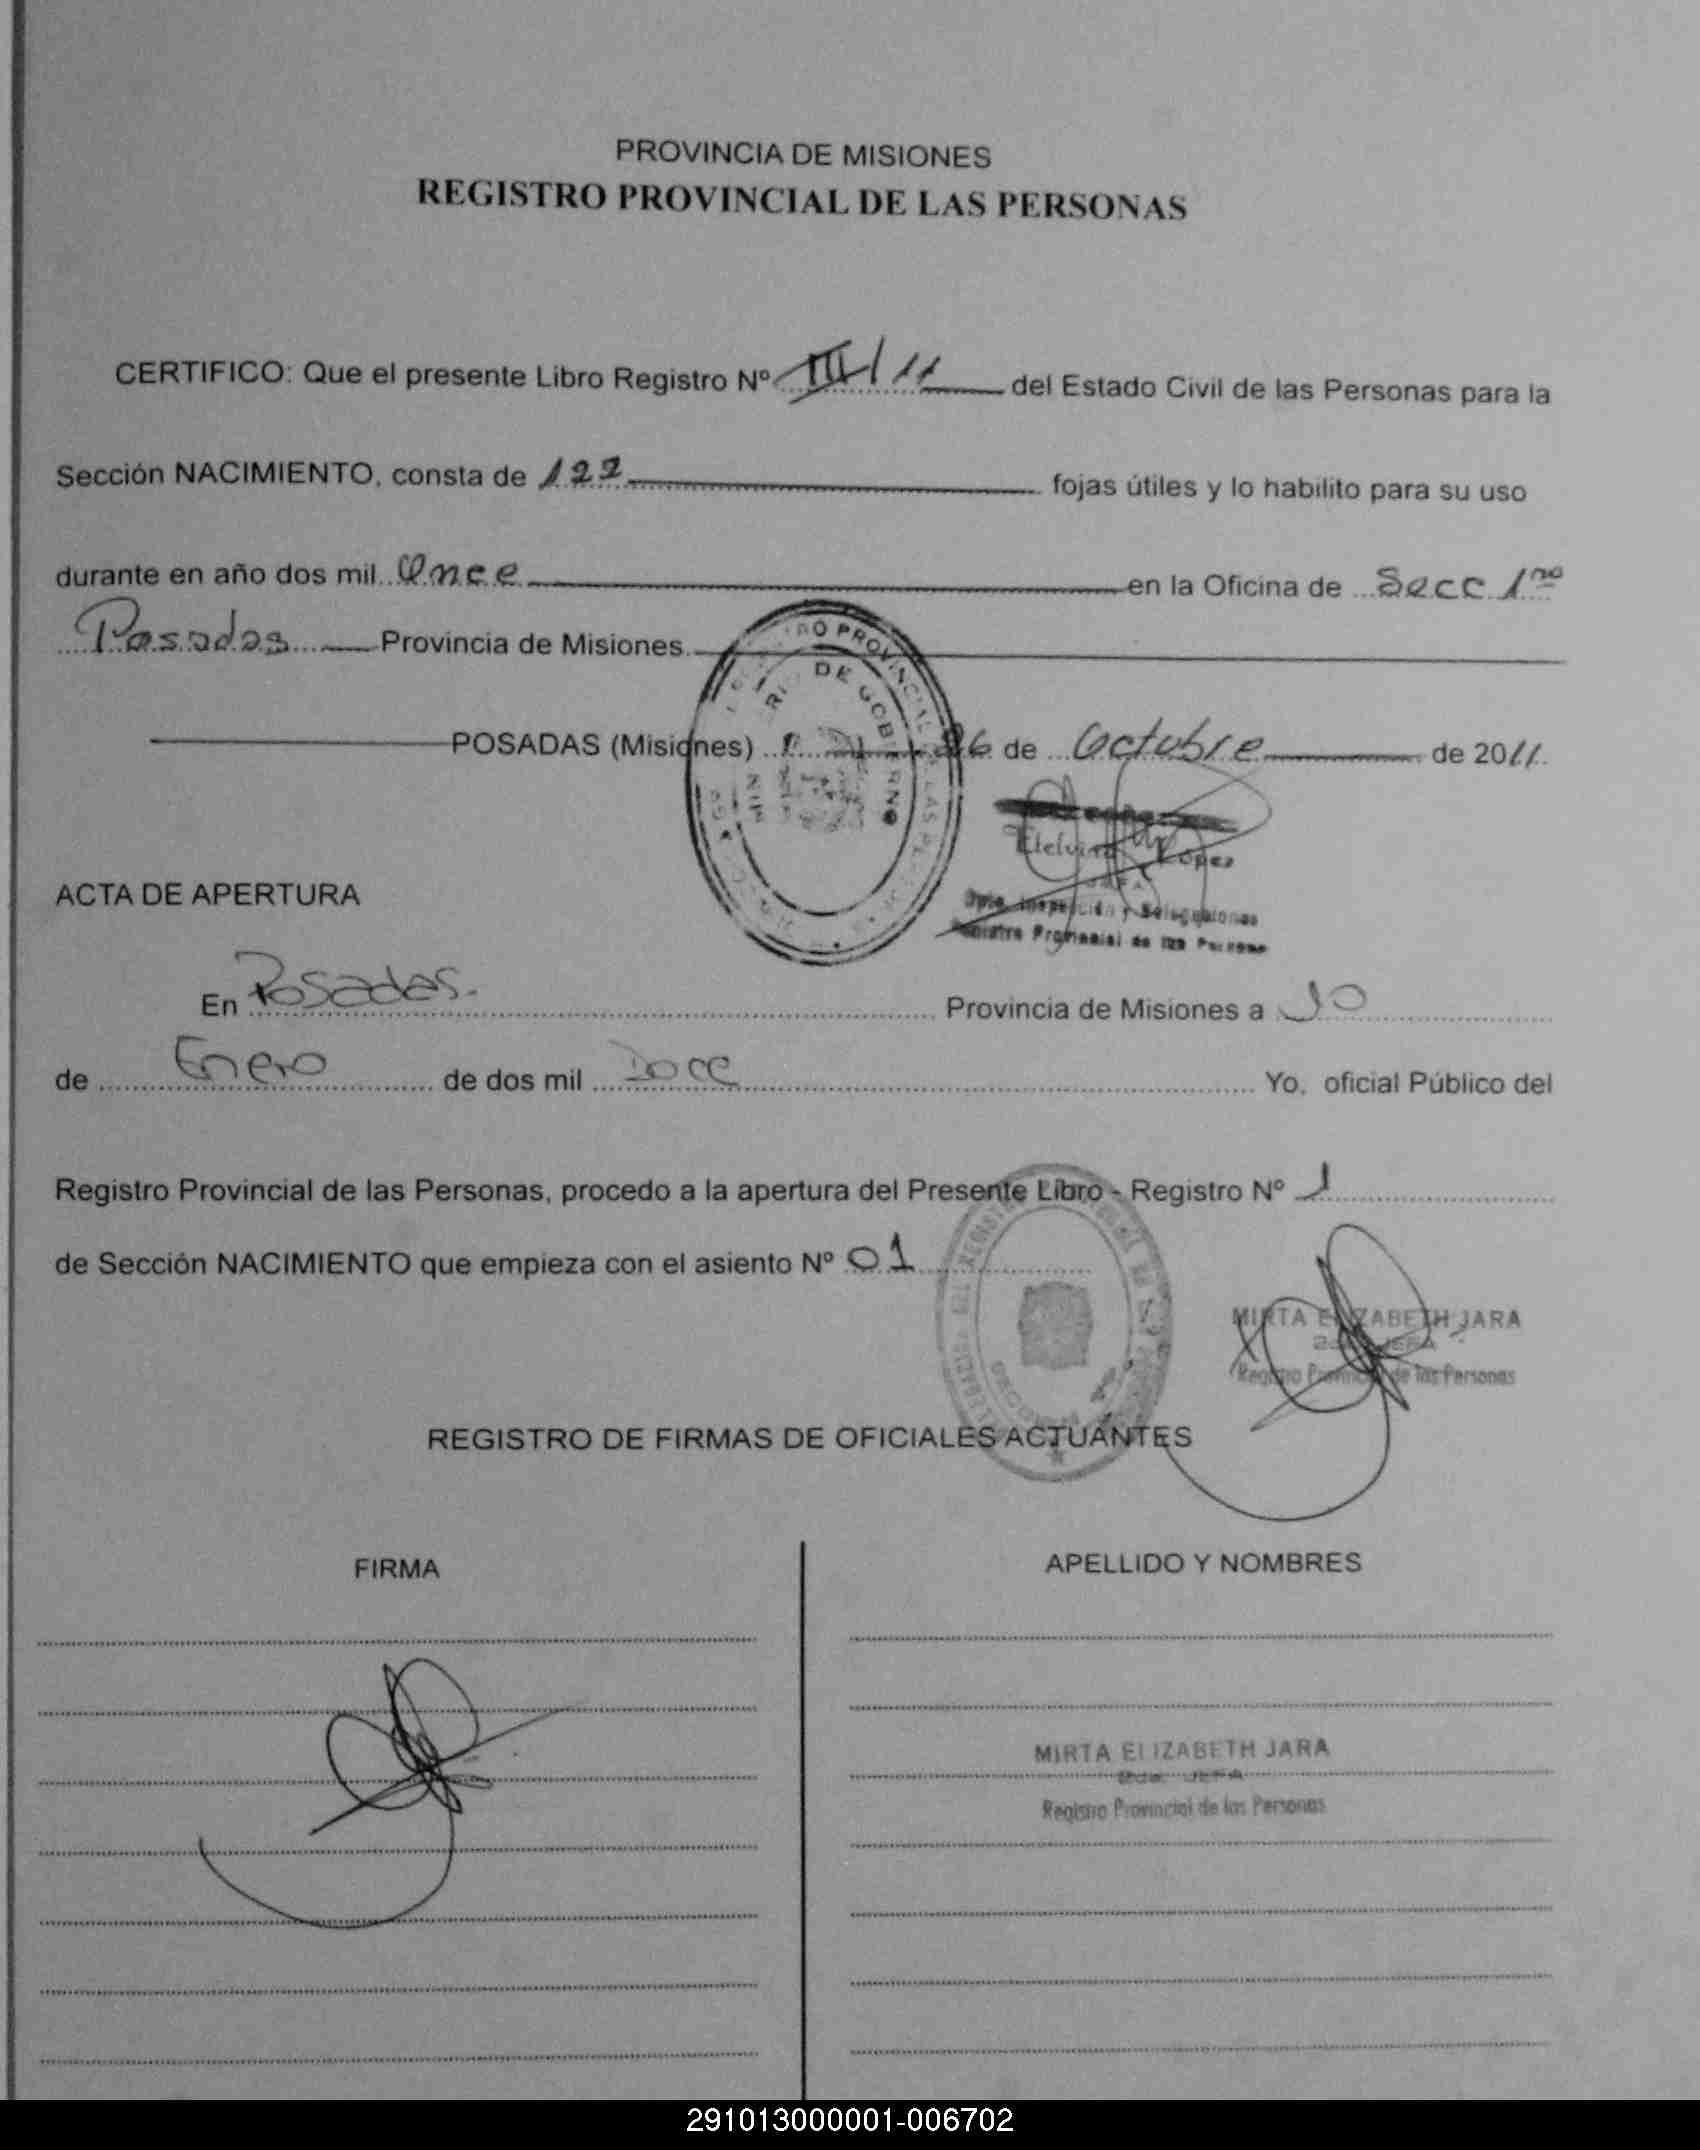 PROVINCIA DE MISIONES
REGISTRO PROVINCIAL DE LAS PERSONAS
CERTIFICO: Que el presente Libro Registro Nº III/11 del Estado Civil de las Personas para la
Sección NACIMIENTO, consta de 122 fojas útiles y lo habilito para su uso
durante en año dos mil Once en la Oficina de Secc 1ra
Posadas Provincia de Misiones
POSADAS (Misiones) 26 de Octubre de 2011
López
Registro Provincial de las Personas
ACTA DE APERTURA
En Posadas. Provincia de Misiones a 10
de Enero de dos mil Doce Yo, oficial Público del
Registro Provincial de las Personas, procedo a la apertura del Presente Libro - Registro Nº 1
de Sección NACIMIENTO que empieza con el asiento Nº 01
MIRTA ELIZABETH JARA
2da. JEFA
Registro Provincial de las Personas
REGISTRO DE FIRMAS DE OFICIALES ACTUANTES
FIRMA
APELLIDO Y NOMBRES
MIRTA ELIZABETH JARA
2da. JEFA
Registro Provincial de las Personas
291013000001-006702